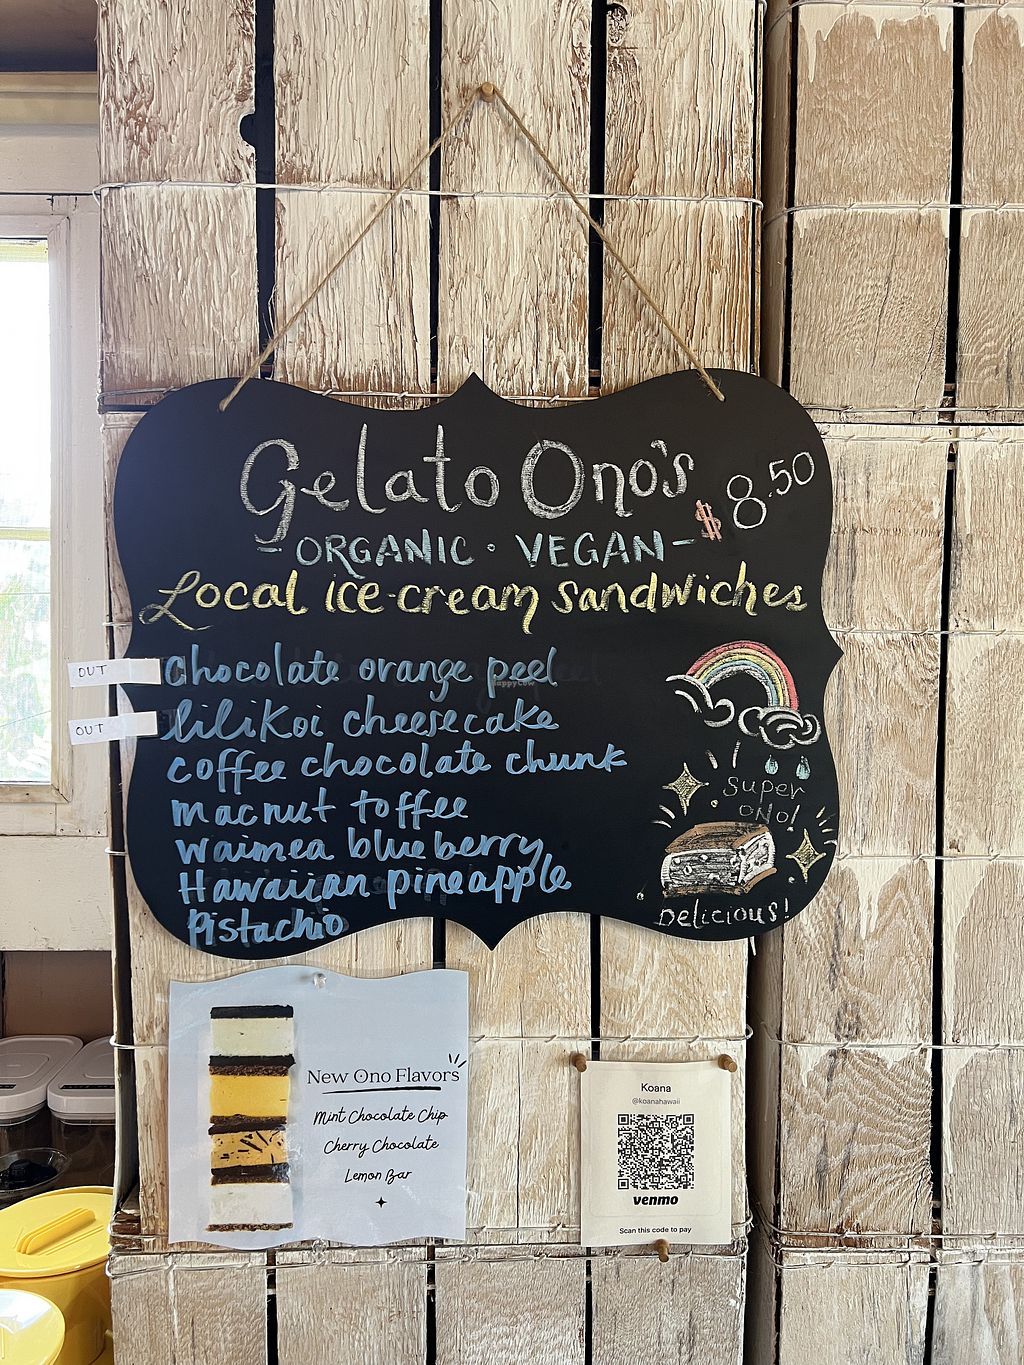 Gelato Ono's $8.50
- ORGANIC • VEGAN -
Local ice cream sandwiches
OUT chocolate orange peel
OUT lilikoi cheesecake
coffee chocolate chunk
macnut toffee
waimea blueberry
Hawaiian pineapple
Pistachio
super
ONO!
Delicious!
New Ono Flavors
Mint Chocolate Chip
Cherry Chocolate
Lemon Bar
Koana
@koanahawaii
venmo
Scan this code to pay
HappyCow